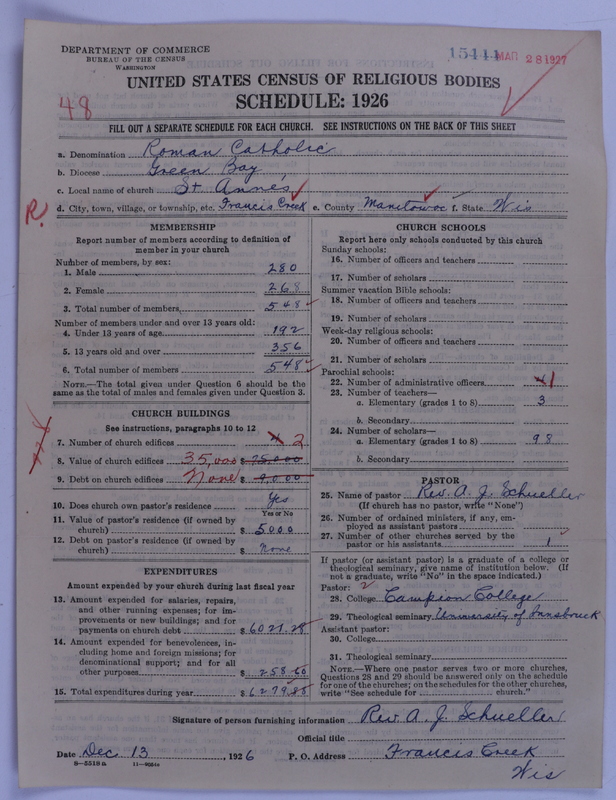 DEPARTMENT OF COMMERCE
BUREAU OF THE CENSUS
WASHINGTON
MAR 28 1927
UNITED STATES CENSUS OF RELIGIOUS BODIES
SCHEDULE: 1926
48
FILL OUT A SEPARATE SCHEDULE FOR EACH CHURCH. SEE INSTRUCTIONS ON THE BACK OF THIS SHEET
a. Denomination Roman Catholic
b. Diocese Green Bay
c. Local name of church St Anne's
d. City, town, village, or township, etc. Francis Creek e. County Manitowoc f. State Wis
R.
MEMBERSHIP
Report number of members according to definition of
member in your church
Number of members, by sex:
1. Male 280
2. Female 268
3. Total number of members 548
Number of members under and over 13 years old:
4. Under 13 years of age 192
5. 13 years old and over 356
6. Total number of members 548
NOTE.—The total given under Question 6 should be the
same as the total of males and females given under Question 3.
CHURCH BUILDINGS
See instructions, paragraphs 10 to 12
7. Number of church edifices 2
8. Value of church edifices 35,000 $ 75,000
9. Debt on church edifices None $ 9,000
10. Does church own pastor's residence Yes
Yes or No
11. Value of pastor's residence (if owned by
church) $ 5000
12. Debt on pastor's residence (if owned by
church) $ None
EXPENDITURES
Amount expended by your church during last fiscal year
13. Amount expended for salaries, repairs,
and other running expenses; for im-
provements or new buildings; and for
payments on church debt $ 6021.28
14. Amount expended for benevolences, in-
cluding home and foreign missions; for
denominational support; and for all
other purposes $ 258.60
15. Total expenditures during year $ 6279.88
CHURCH SCHOOLS
Report here only schools conducted by this church
Sunday schools:
16. Number of officers and teachers
17. Number of scholars
Summer vacation Bible schools:
18. Number of officers and teachers
19. Number of scholars
Week-day religious schools:
20. Number of officers and teachers
21. Number of scholars
Parochial schools:
22. Number of administrative officers 1
23. Number of teachers—
a. Elementary (grades 1 to 8) 3
b. Secondary
24. Number of scholars—
a. Elementary (grades 1 to 8) 98
b. Secondary
PASTOR
25. Name of pastor Rev. A. J. Schueller
(If church has no pastor, write "None")
26. Number of ordained ministers, if any, em-
ployed as assistant pastors
27. Number of other churches served by the
pastor or his assistants 1
If pastor (or assistant pastor) is a graduate of a college or
theological seminary, give name of institution below. (If
not a graduate, write "No" in the space indicated.)
Pastor: 2
28. College Campion College
29. Theological seminary University of Innsbruck
Assistant pastor:
30. College
31. Theological seminary
NOTE.—Where one pastor serves two or more churches,
Questions 28 and 29 should be answered only on the schedule
for one of the churches; on the schedules for the other churches,
write "See schedule for church."
Signature of person furnishing information Rev. A. J. Schueller
Official title
Date Dec 13, 1926 P. O. Address Francis Creek
Wis